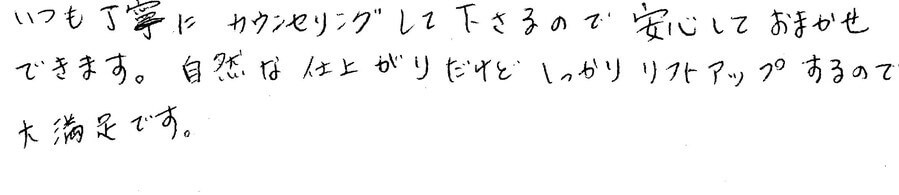 いつも丁寧に カウンセリングして下さるので 安心して おまかせ
できます。 自然な 仕上がりだけど しっかり リフトアップするので
大満足です。